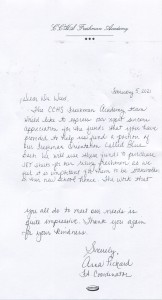 CCHS Freshman Academy
January 5, 2021
Dear Mr. West,
The CCHS Freshman Academy team
would like to express our most sincere
appreciation for the funds that you have
provided to help us fund a portion of
our Freshman Orientation called Blue
Back. We will use these funds to purchase
for the coming freshmen as we
feel it is important for them to be
to our new school home. The work that
you all do to meet our needs is
quite impressive. Thank you again
for your kindness.
Sincerely,
Anna Pickard
FA Coordinator